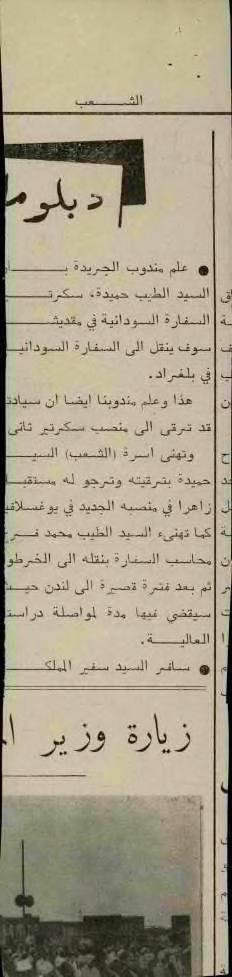 الشعب
دبلوما
● علم مندوب الجريدة بــار
السيد الطيب حميدة، سكرتيـ
السفارة السودانية في مقديشـ
سوف ينقل الى السفارة السودانيـ
في بلغراد.
هذا وعلم مندوبنا ايضا ان سيادتـ
قد ترقى الى منصب سكرتير ثانى
وتهنى اسرة (الشعب) السيـ
حميدة بترقيته وترجو له مستقبـلا
زاهرا في منصبه الجديد في يوغسلافيـ
كما تهنىء السيد الطيب محمد فـرج
محاسب السفارة بنقله الى الخرطو
ثم بعد فترة قصيرة الى لندن حيـث
سيقضي فيها مدة لمواصلة دراستـ
العاليـة.
● سافر السيد سفير المملكـ
زيارة وزير ا